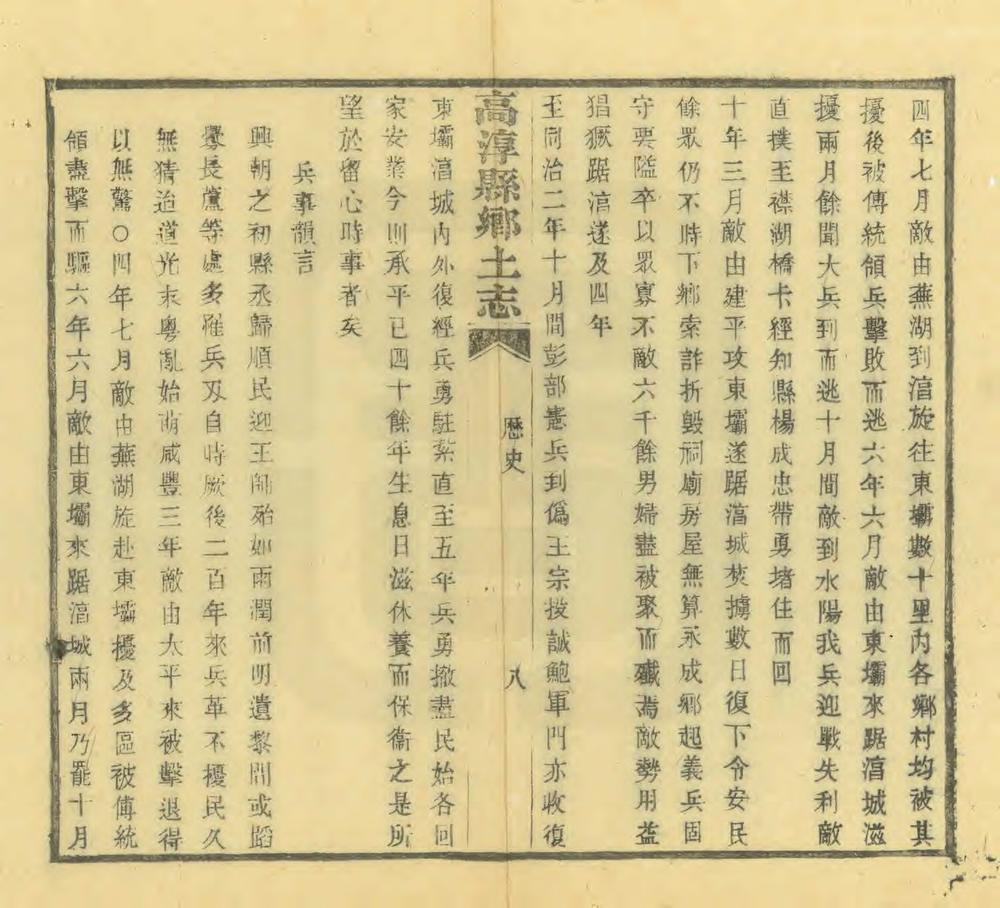 四年七月敵由蕪湖到淳旋往東壩數十里內各鄉村均被其
擾後被傅統領兵擊敗而逃六年六月敵由東壩來踞淳城滋
擾兩月餘聞大兵到而逃十月間敵到水陽我兵迎戰失利敵
直撲至襟湖橋卡經知縣楊成忠帶勇堵住而回
十年三月敵由建平攻東壩遂踞淳城焚擄數日復下令安民
餘眾仍不時下鄉索詐折毀祠廟房屋無算永成鄉起義兵固
守要隘卒以眾寡不敵六千餘男婦盡被聚而殲焉敵勢用益
猖獗踞淳遂及四年
至同治二年十月間彭部憲兵到僞王宗投誠鮑軍門亦收復
高淳縣鄉土志
歷史
八
東壩淳城內外復經兵勇駐紮直至五年兵勇撤盡民始各回
家安業今則承平已四十餘年生息日滋休養而保衛之是所
望於留心時事者矣
兵事韻言
興朝之初縣丞歸順民迎王師殆如雨潤前明遺黎間或蹈
釁長蘆等處多罹兵刃自時厥後二百年來兵革不擾民久
無猜迨道光末粵亂始萌咸豐三年敵由太平來被擊退得
以無驚〇四年七月敵由蕪湖旋赴東壩擾及多區被傅統
領盡擊而驅六年六月敵由東壩來踞淳城兩月乃罷十月